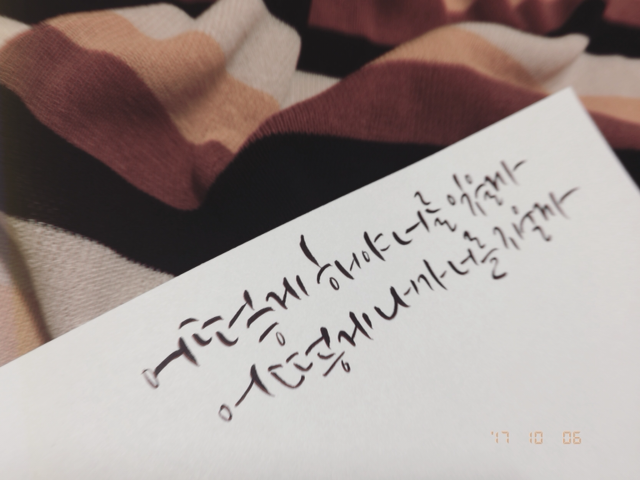 어떻게 해야 너를 잊을까
어떻게 내가 너를 지울까
'17 10 06